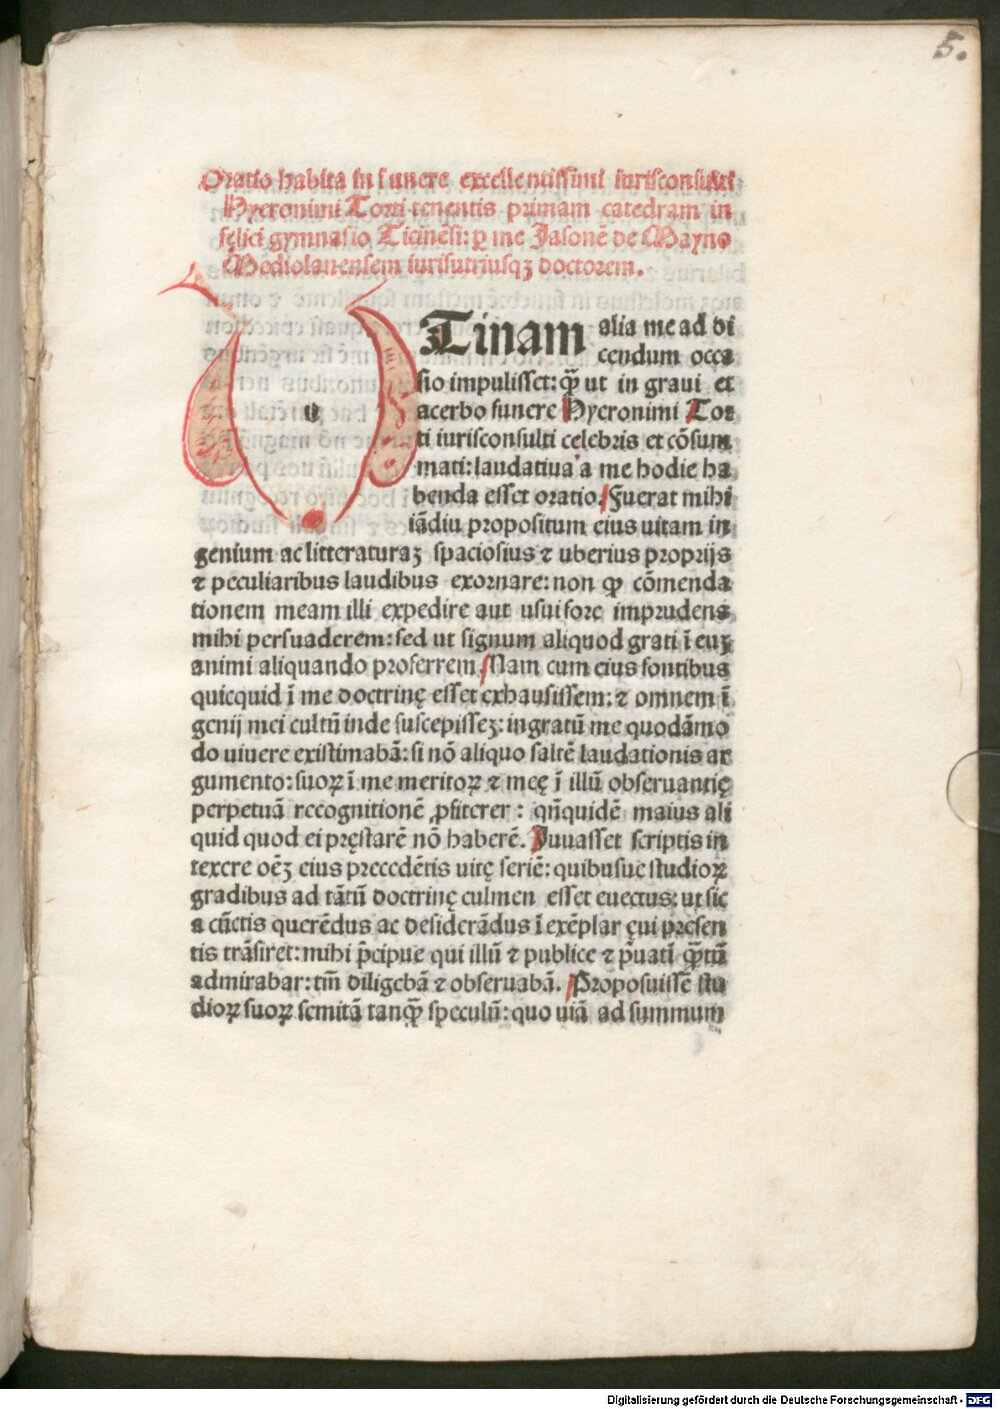 5.
Oratio habita in funere excellentissimi iurisconsulti
Hyeronimi Torti tenentis primam catedram in
felici gymnasio Ticinēsi: ꝑ me Jasonē de Mayno
Mediolanensem iurisutriusqꝫ doctorem.
UTinam alia me ad di
cendum occa
sio impulisset: ꝙ̃ ut in graui et
acerbo funere Hyeronimi Tor
ti iurisconsulti celebris et cōsum
mati: laudatiua a me hodie ha
benda esset oratio. Fuerat mihi
iādiu propositum eius uitam in
genium ac litteraturaꝫ spaciosius ⁊ uberius proprijs
⁊ peculiaribus laudibus exornare: non ꝙ cōmenda
tionem meam illi expedire aut usui fore imprudens
mihi persuaderem: sed ut signum aliquod grati ī euꝫ
animi aliquando proferrem. Nam cum eius fontibus
quicquid ī me doctrinę esset exhausissem: ⁊ omnem ī
genij mei cultū inde suscepisseꝫ: ingratū me quodāmo
do uiuere existimabā: si nō aliquo saltē laudationis ar
gumento: suoꝝ ī me meritoꝝ ⁊ meę ī illū obseruantię
perpetuā recognitionē ꝓfiterer: qn̄quidē maius ali
quid quod ei pręstarē nō haberē. Juuasset scriptis in
texere oēꝫ eius precedētis uitę seriē: quibusue studioꝝ
gradibus ad tātū doctrinę culmen esset euectus: ut sic
a cūctis querēdus ac desiderādus ī exēplar ęui presen
tis trāsiret: mihi p̄cipue qui illū ⁊ publice ⁊ p̄uatī ꝙ̃tū
admirabar: tm̄ diligebā ⁊ obseruabā. Proposuissē stu
dioꝝ suoꝝ semitā tanꝙ̃ speculū: quo uiā ad summum
Digitalisierung gefördert durch die Deutsche Forschungsgemeinschaft - DFG